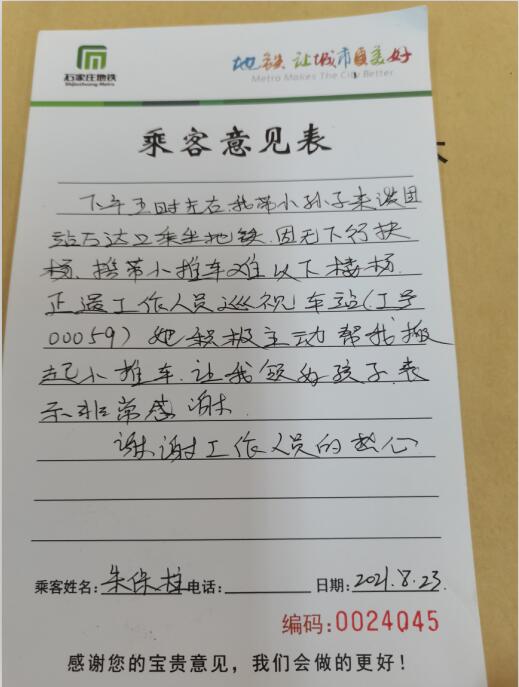 石家庄地铁
Shijiazhuang Metro
地铁 让城市更美好
Metro Makes The City Better
乘客意见表
下午五时左右我带小孙子来谈固
站万达口乘坐地铁.因无下行扶
梯.携带小推车难以下楼梯.
正遇工作人员巡视车站(工号
00059)她积极主动帮我搬
起小推车.让我领好孩子.表
示非常感谢.
谢谢工作人员的热心
乘客姓名:朱保柱电话: 日期:2021.8.23.
编码:0024045
感谢您的宝贵意见，我们会做的更好！